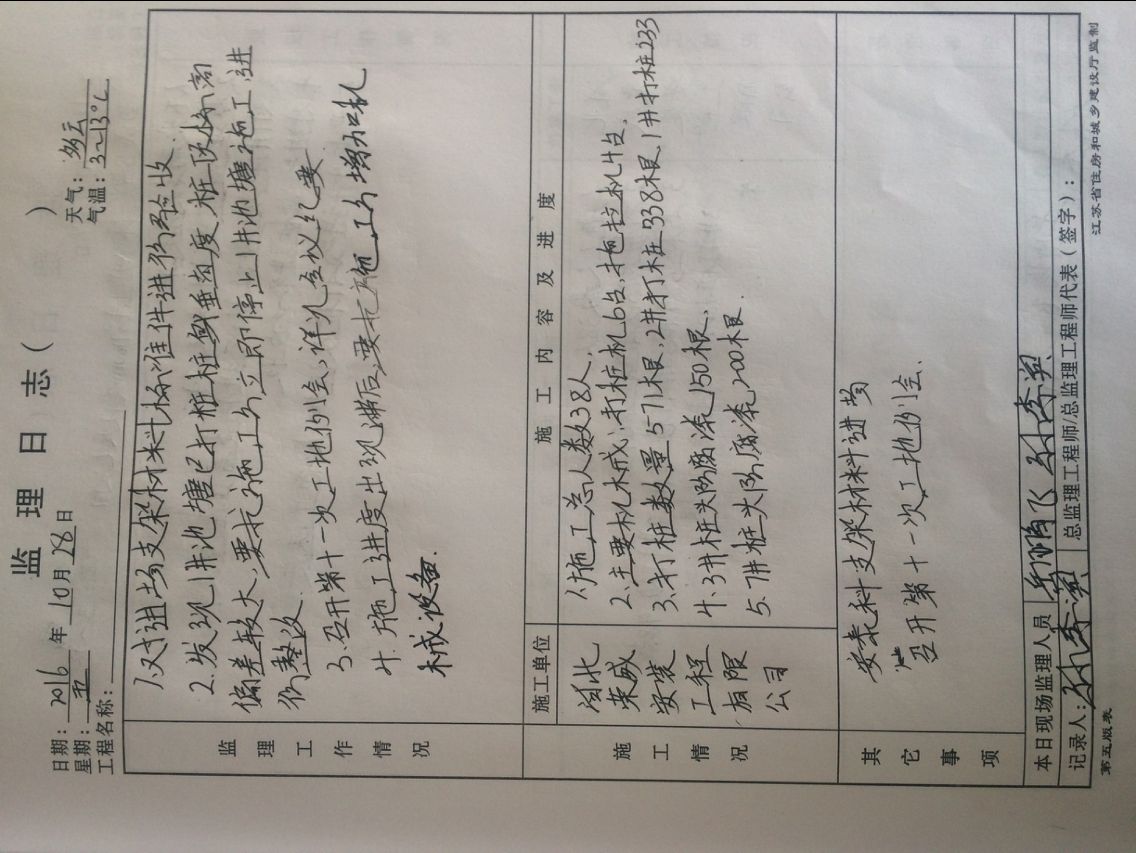 监 理 日 志（ ）
日期：2016 年 10 月 28 日
天气：多云
星期：五
气温：3~13℃
工程名称：
监理工作情况
1.对进场支架材料标准件进行验收.
2.发现1#池塘已打桩垂直度桩距标高
偏差较大，要求施工方立即停止1#池塘施工,进
行整改.
3.召开第十一次工地例会,详见会议纪要
4.施工进度出现滞后,要求施工方增加机
械设备.
施工情况
施工单位
施 工 内 容 及 进 度
湖北
荣威
安装
工程
有限
公司
1.施工总人数38人.
2.主要机械,打桩机6台,拖拉机4台,
3.打桩数量571根,2#打桩338根,1#打桩233
4.3#桩头防腐漆150根.
5.7#桩头防腐漆200根.
其它事项
安泰科支架材料进场
召开第十一次工地例会.
本日现场监理人员
记录人：
总监理工程师/总监理工程师代表（签字）：
第五版表
江苏省住房和城乡建设厅监制